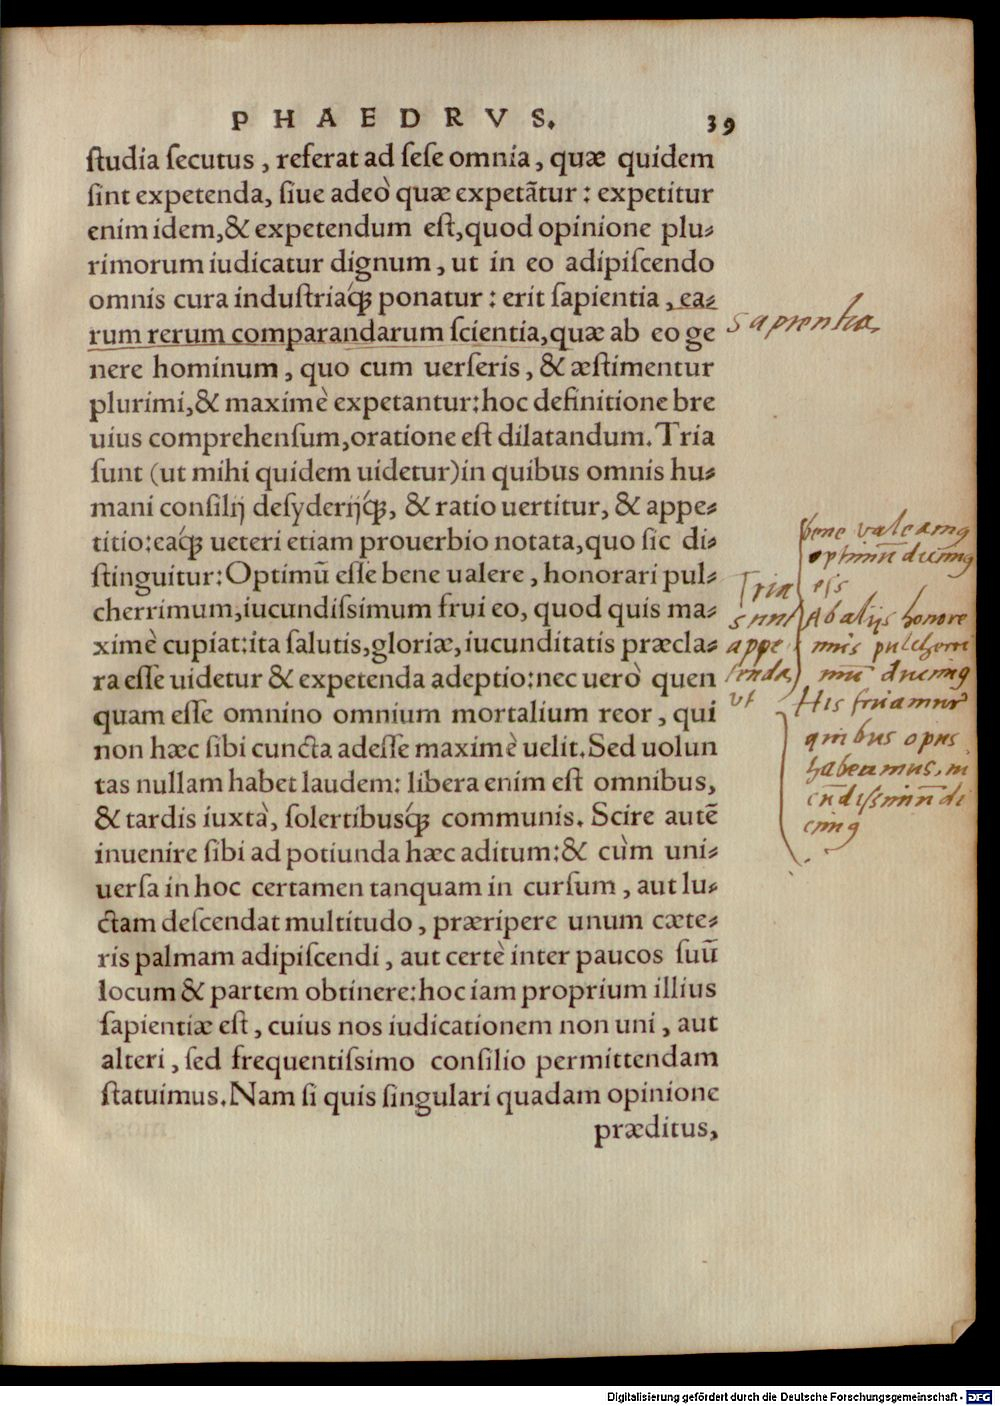 PHAEDRVS. 39
ſtudia ſecutus, referat ad ſeſe omnia, quæ quidem
ſint expetenda, ſiue adeò quæ expetãtur: expetitur
enim idem, & expetendum eſt, quod opinione plu-
rimorum iudicatur dignum, ut in eo adipiſcendo
omnis cura induſtriaq́ꝫ ponatur: erit ſapientia, ea-
rum rerum comparandarum ſcientia, quæ ab eo ge
nere hominum, quo cum uerſeris, & æſtimentur
plurimi, & maximè expetantur: hoc definitione bre
uius comprehenſum, oratione eſt dilatandum. Tria
ſunt (ut mihi quidem uidetur) in quibus omnis hu-
mani conſilij deſyderijq́ꝫ, & ratio uertitur, & appe-
titio: eaq́ꝫ ueteri etiam prouerbio notata, quo ſic di-
ſtinguitur: Optimũ eſſe bene ualere, honorari pul-
cherrimum, iucundiſsimum frui eo, quod quis ma-
ximè cupiat: ita ſalutis, gloriæ, iucunditatis præcla-
ra eſſe uidetur & expetenda adeptio: nec uerò quen
quam eſſe omnino omnium mortalium reor, qui
non hæc ſibi cuncta adeſſe maximè uelit. Sed uolun
tas nullam habet laudem: libera enim eſt omnibus,
& tardis iuxtà, ſolertibusq́ꝫ communis. Scire autẽ
inuenire ſibi ad potiunda hæc aditum: & cùm uni-
uerſa in hoc certamen tanquam in curſum, aut lu-
ctam deſcendat multitudo, præripere unum cæte-
ris palmam adipiſcendi, aut certè inter paucos ſuũ
locum & partem obtinere: hoc iam proprium illius
ſapientiæ eſt, cuius nos iudicationem non uni, aut
alteri, ſed frequentiſsimo conſilio permittendam
ſtatuimus. Nam ſi quis ſingulari quadam opinione
præditus,
sapientia,
Tria
sunt
appe
tenda,
ut
bene valeamꝰ
optimũ ducimꝰ
ess
Ab alijs honore
mis pulcherri
mũ ducimꝰ
His fruamur
quibus opus
habeamus, iu
cũdissimũ du
cimꝰ
Digitalisierung gefördert durch die Deutsche Forschungsgemeinschaft - DFG